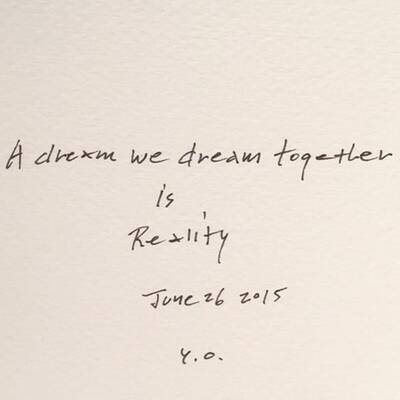 A dream we dream together
is
Reality
June 26 2015
y.o.